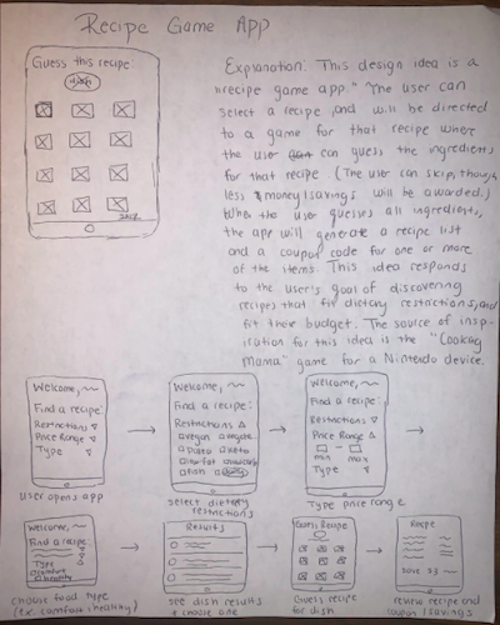 Recipe Game App
Guess this recipe:
dish
skip
Explanation: This design idea is a
"recipe game app." The user can
select a recipe, and will be directed
to a game for that recipe where
the user can can guess the ingredients
for that recipe. (The user can skip, though
less money/savings will be awarded.)
When the user guesses all ingredients,
the app will generate a recipe list
and a coupon code for one or more
of the items. This idea responds
to the user's goal of discovering
recipes that fit dietary restrictions, and
fit their budget. The source of insp-
iration for this idea is the "Cooking
Mama" game for a Nintendo device.
Welcome,
Find a recipe:
Restrictions
Price Range
Type
user opens app
Welcome,
Find a recipe:
Restrictions
vegan
paleo keto
low fat
select dietary
restrictions
Welcome,
Find a recipe:
Restrictions
Price Range
min - max
Type
Type price range
Welcome,
Find a recipe:
Type
comfort
healthy
choose food type
(ex. comfort, healthy)
Results
see dish results
+ choose one
Guess Recipe
Guess recipe
for dish
Recipe
Save $3
review recipe and
coupon/savings